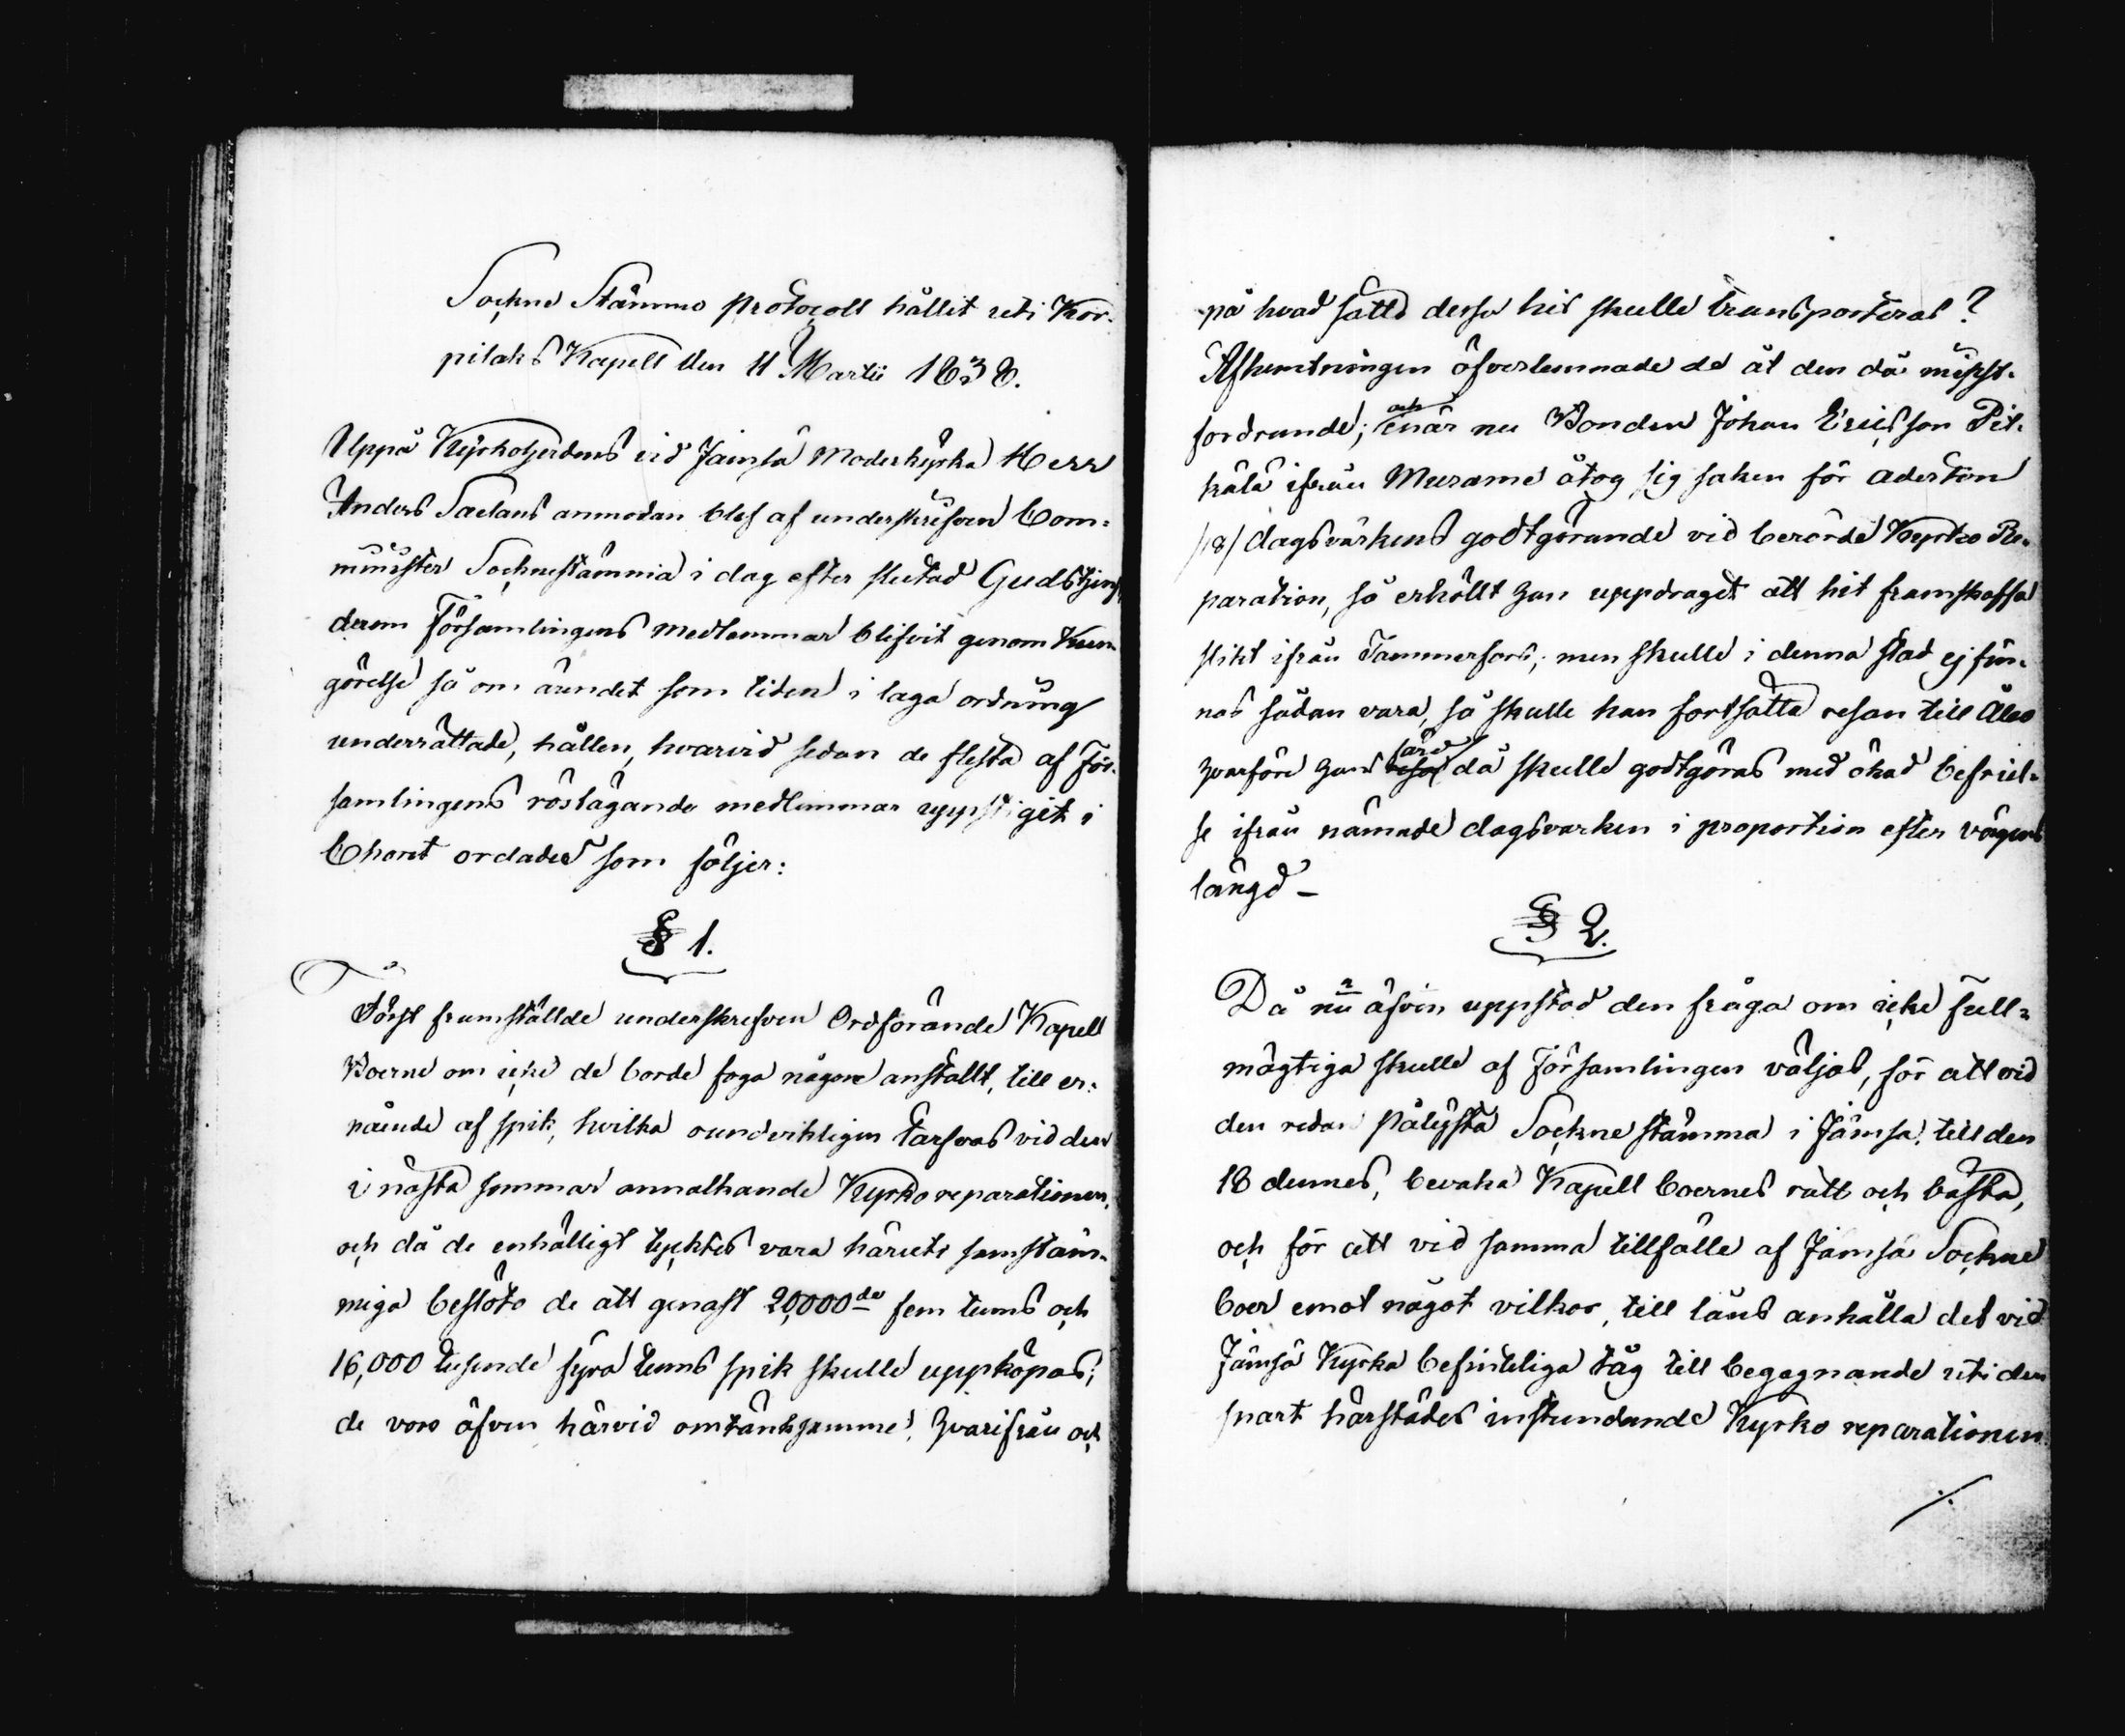 Sockne Stämmo protocoll hållit uti Kor-
pilaks Kapell den 11 Martii 1838.
Uppå Kyrkoherdens vid Jämsä Moderkyrka Herr
Anders Saelans anmodan blef af underskrifven Com-
minister Socknestämma i dag efter slutad Gudstjenst,
derom Församlingens medlemmar blifvit genom Kun-
görelse så om ärendet som tiden i laga ordning
underrättade, hållen, hvarvid sedan de flesta af För-
samlingens röstägande medlemmar uppstigit i
Choret ordades som följer:
§ 1.
Först framställde underskrefven Ordförande Kapell
Boerne om icke de borde foga någon anstallt, till er-
nående af spik, hvilka oundvikligen tarfvas vid den
i nästa sommar annalkande Kyrko reparationen,
och då de enhälligt tycktes vara häruti samstäm-
miga beslöto de att genast 20,000de fem tums och
16,000 tusende fyra tums spik skulle uppköpas;
de voro äfven härvid omtänksamme, hvarifrån och
på hvad sätt dessa hit skulle transporteras?
Afhemtningen öfverlemnade de åt den då minst-
fordrande; och enär nu Bonden Johan Ericsson Pit-
kälä ifrån Muramé åtog sig saken för aderton
/18/ dagsvärkens godtgörande vid berörde Kyrko Re-
paration, så erhöllt han uppdraget att hit framskaffa
spik ifrån Tammerfors; men skulle i denna stad ej fin-
nas sådan vara, så skulle han fortsätta resan till Åbo
hvarföre hans resa färd då skulle godtgöras med ökad befriel-
se ifrån nämnde dagsvärken i proportion efter vägens
längd –
§ 2.
Då nu äfven uppstod den fråga om icke full-
mägtiga skulle af Församlingen väljas, för att vid
den redan pålysta Sockne stämma i Jämsä, till den
18 dennes, bevaka Kapell boernes rätt och bästa,
och för att vid samma tillfälle af Jämsä Sockne
boer emot något vilkor, till låns anhålla det vid
Jämsä Kyrka befinteliga tåg till begagnande uti den
snart härstädes instundande Kyrko reparationen
./.